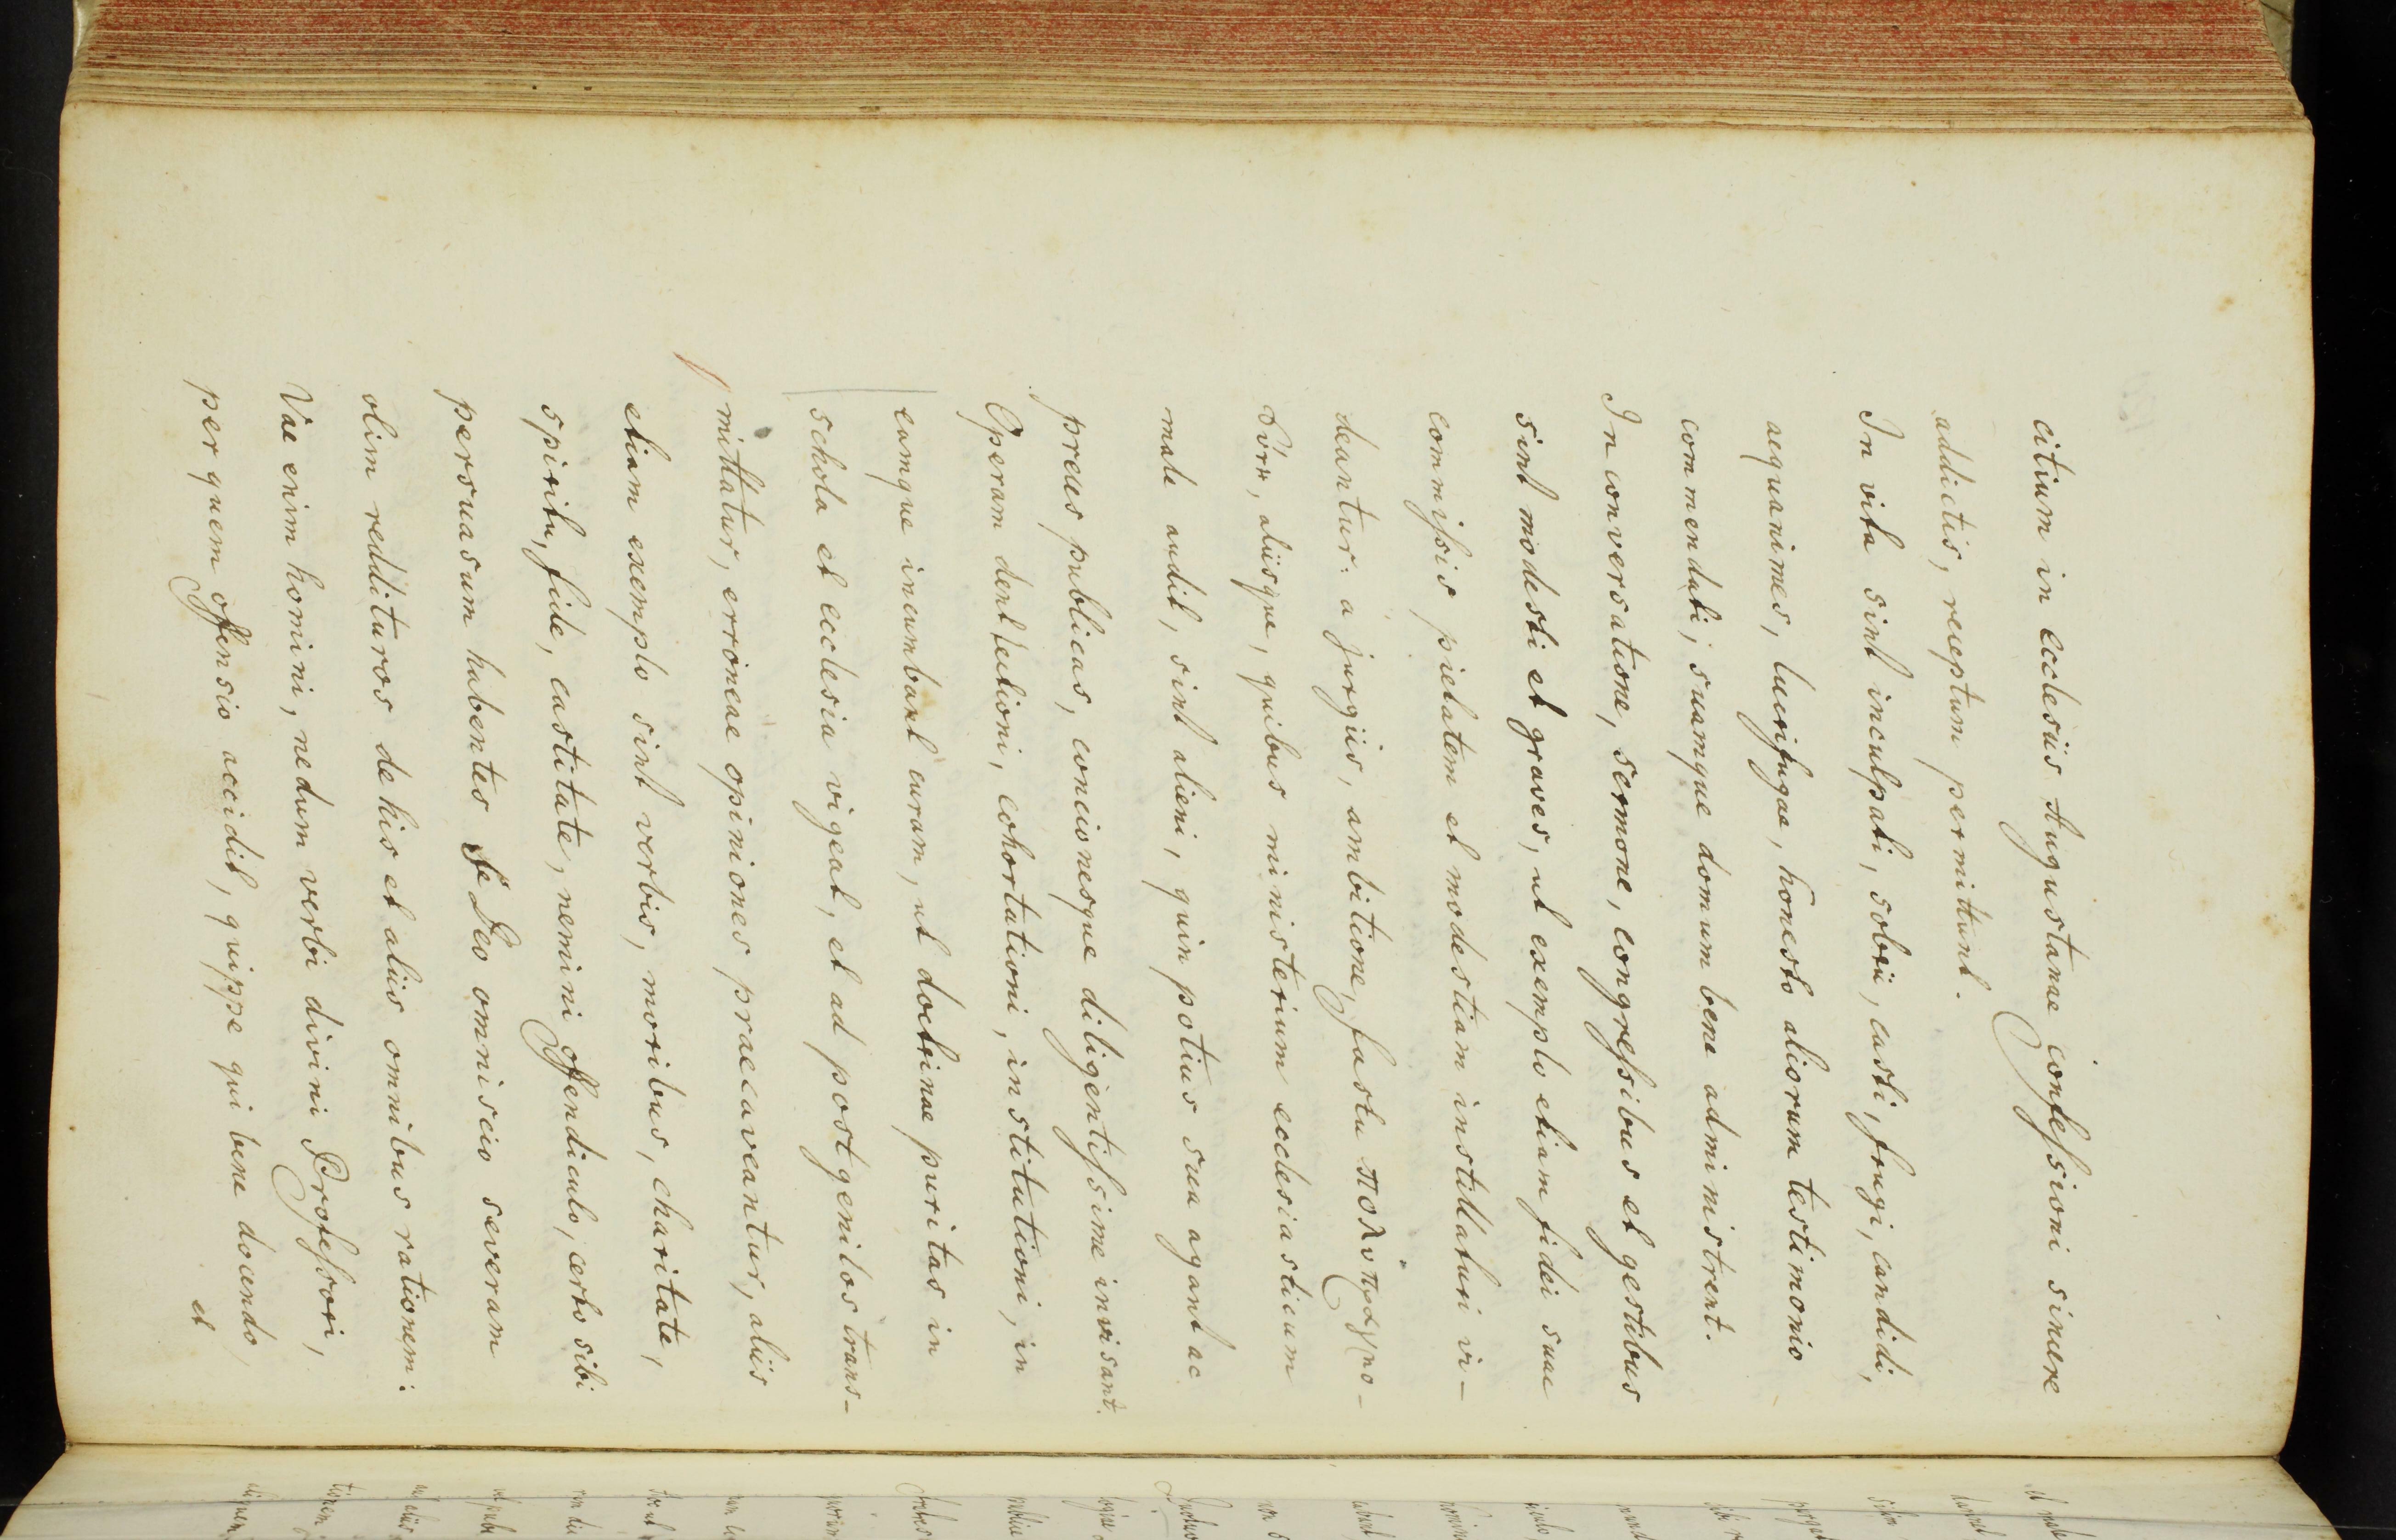 citium in ecclesiis Augustanae confessioni sincere
addictis, receptum permittunt.
In vita sint inculpati, sobrii, casti, frugi, candidi,
aequanimes, lucifugae, honesto aliorum testimonio
commendati; suamque domum bene administrent.
In conversatione, sermone, congressibus et gestibus
sint modesti et graves, ut exemplo etiam fidei suae
commissis pietatem et modestiam instillaturi vi-
deantur: a jurgiis, ambitione, fastu πολυπραγμο-
σύνη, aliisque, quibus ministerium ecclesiasticum
male audit, sint alieni, quin potius sua agant ac
preces publicas, concionesque diligentissime invisant.
Operam dent lectioni, cohortationi, institutioni, in
eamque incumbant curam, ut doctrinae puritas in
schola et ecclesia vigeat, et ad postgenitos trans-
mittatur, erroneae opiniones praecaveantur, aliis
etiam exemplo sint verbis, moribus, charitate,
spiritu, fide, castitate, nemini offendiculo, certo sibi
persuasum habentes se Deo omniscio severam
olim reddituros de his et aliis omnibus rationem:
Vae enim homini, nedum verbi divini Professori,
per quem offensio accidit, quippe qui bene docendo,
et